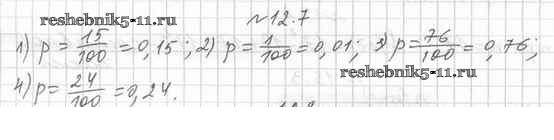 reshebnik5-11.ru
№12.7
1) p = 15/100 = 0,15; 2) p = 1/100 = 0,01; 3) p = 76/100 = 0,76;
reshebnik5-11.ru
4) p = 24/100 = 0,24.